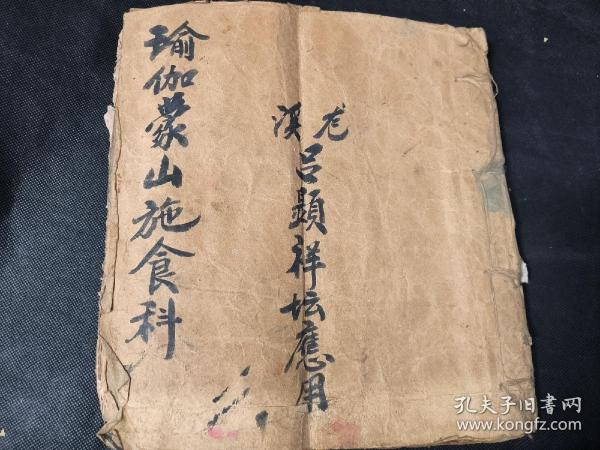 瑜伽蒙山施食科
龙溪
吕顕祥坛應用
孔夫子旧书网
www.kongfz.com